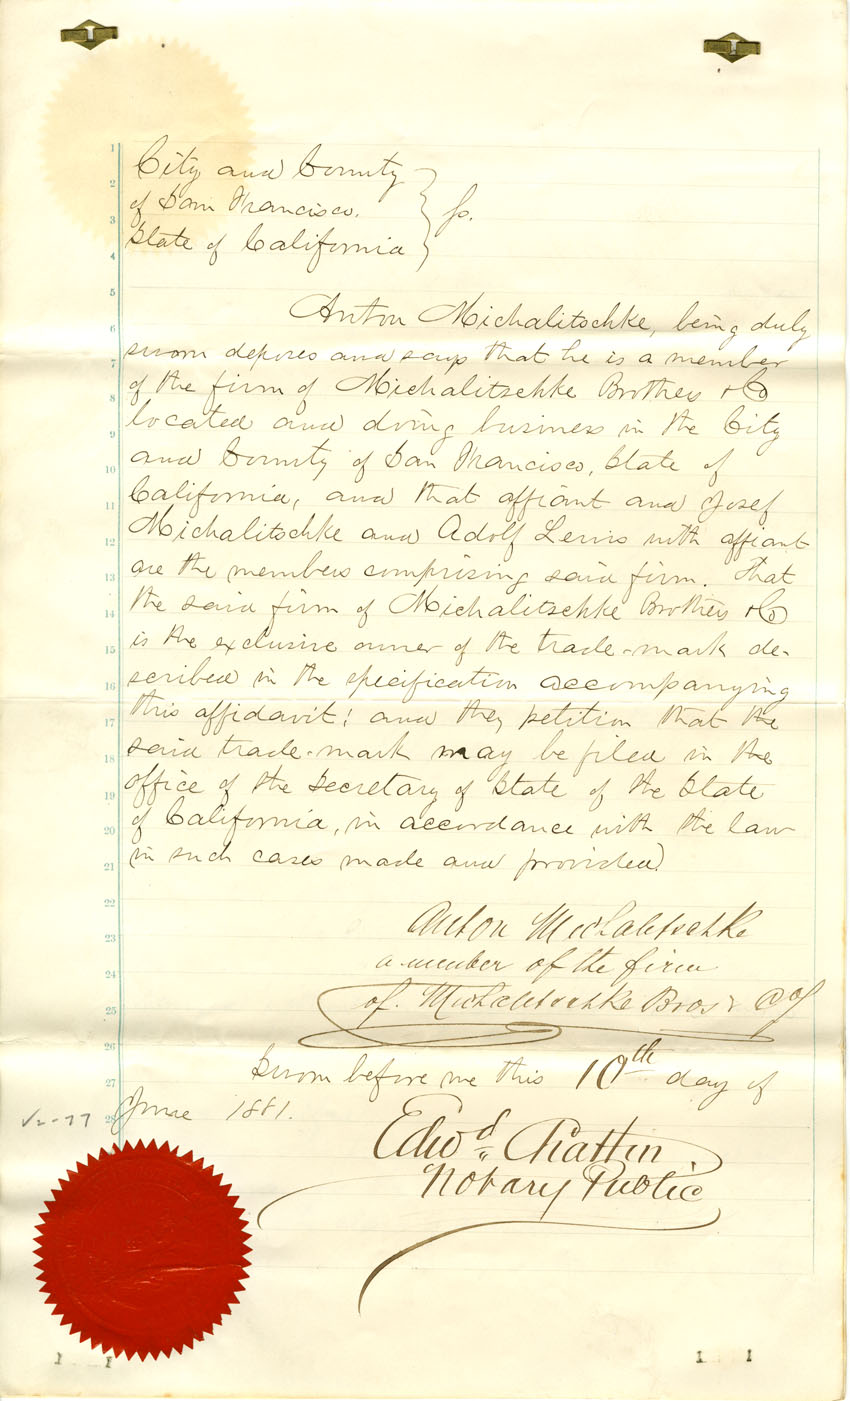 City and County
of San Francisco. } ss.
State of California
Anton Michalitschke, being duly
sworn deposes and says that he is a member
of the firm of Michalitschke Brothers & Co
located and doing business in the City
and County of San Francisco, State of
California, and that affiant and Josef
Michalitschke and Adolf Lewis with affiant
are the members comprising said firm. That
the said firm of Michalitschke Brothers & Co
is the exclusive owner of the trade-mark de-
scribed in the specification accompanying
this affidavit; and they petition that the
said trade-mark may be filed in the
office of the Secretary of State of the State
of California, in accordance with the law
in such cases made and provided
Anton Michalitschke
a member of the firm
of. Michalitschke Bros & Co
Sworn before me this 10th day of
June 1881.
Edwd Chattin
Notary Public
1
2
3
4
5
6
7
8
9
10
11
12
13
14
15
16
17
18
19
20
21
22
23
24
25
26
27
28